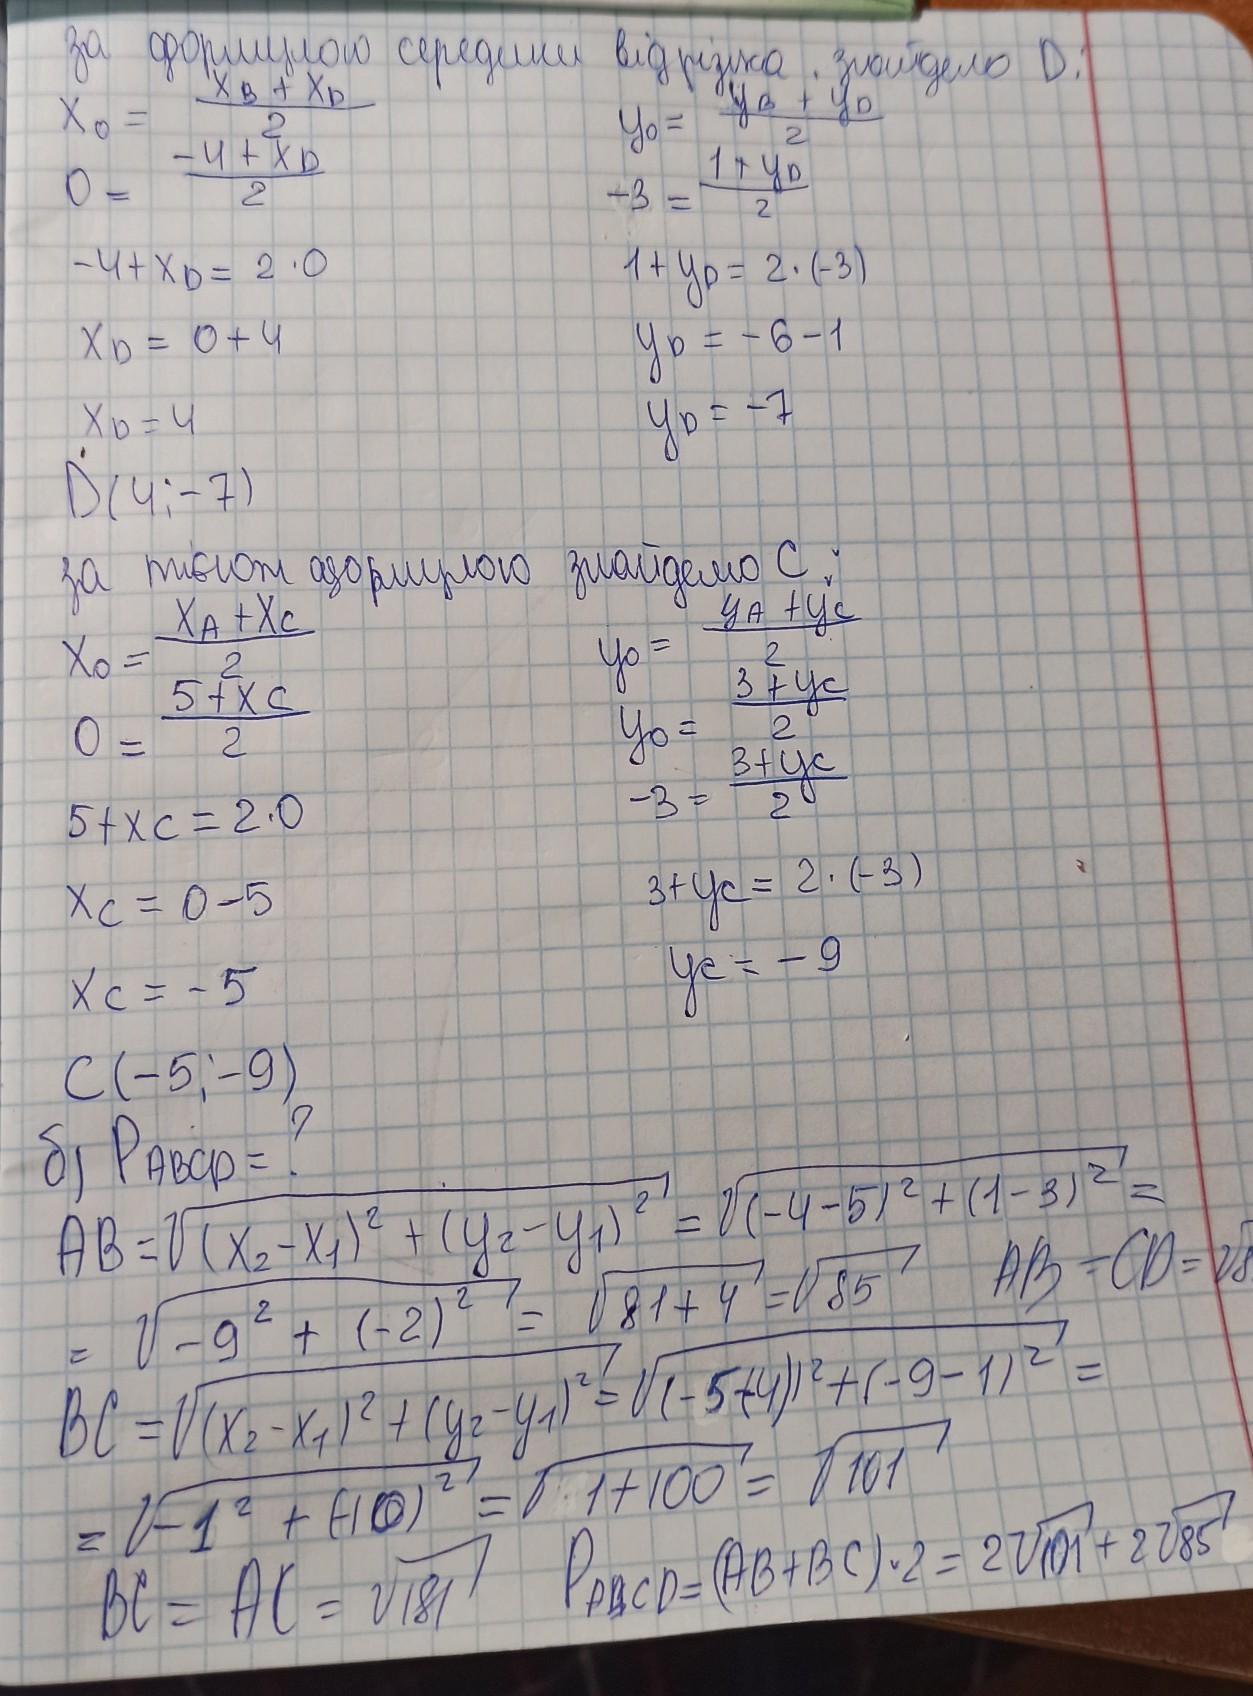 за формулою середини відрізка, знайдемо D:
x₀ = (x_B + x_D)/2   y₀ = (y_B + y_D)/2
0 = (-4 + x_D)/2   -3 = (1 + y_D)/2
-4 + x_D = 2 · 0   1 + y_D = 2 · (-3)
x_D = 0 + 4   y_D = -6 - 1
x_D = 4   y_D = -7
D(4; -7)
за тією ж формулою знайдемо C:
x₀ = (x_A + x_C)/2   y₀ = (y_A + y_C)/2
0 = (5 + x_C)/2   y₀ = (3 + y_C)/2
-3 = (3 + y_C)/2
5 + x_C = 2 · 0   3 + y_C = 2 · (-3)
x_C = 0 - 5   y_C = -9
x_C = -5
C(-5; -9)
б) P_ABCD = ?
AB = √((x₂ - x₁)² + (y₂ - y₁)²) = √((-4 - 5)² + (1 - 3)²) =
= √(-9² + (-2)²) = √(81 + 4) = √85   AB = CD = √8
BC = √((x₂ - x₁)² + (y₂ - y₁)²) = √((-5+4))² + (-9 - 1)²) =
= √(-1² + (-10)²) = √(1 + 100) = √101
BC = AC = √181   P_ABCD = (AB + BC) · 2 = 2√101 + 2√85